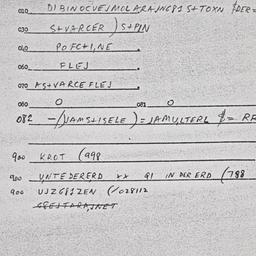 020 DIBINOCVEJMOLARAJNG81 S+TOXN $DER=
030 S+VARCER ) S+PIN
040 POFC+1,NE
060 FLEJ
070 AS+VARCE FLEJ
080 0 081 0
082 -/(JAMS+ISELE)=JAMULTERL $= RF
900 KROT (998
900 UNTEDERERD ** 91 IN DER ERD (788
900 UJZG81ZEN (/028112